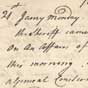 21st Jany Monday
the Sheriff came
On An Affair of
this morning